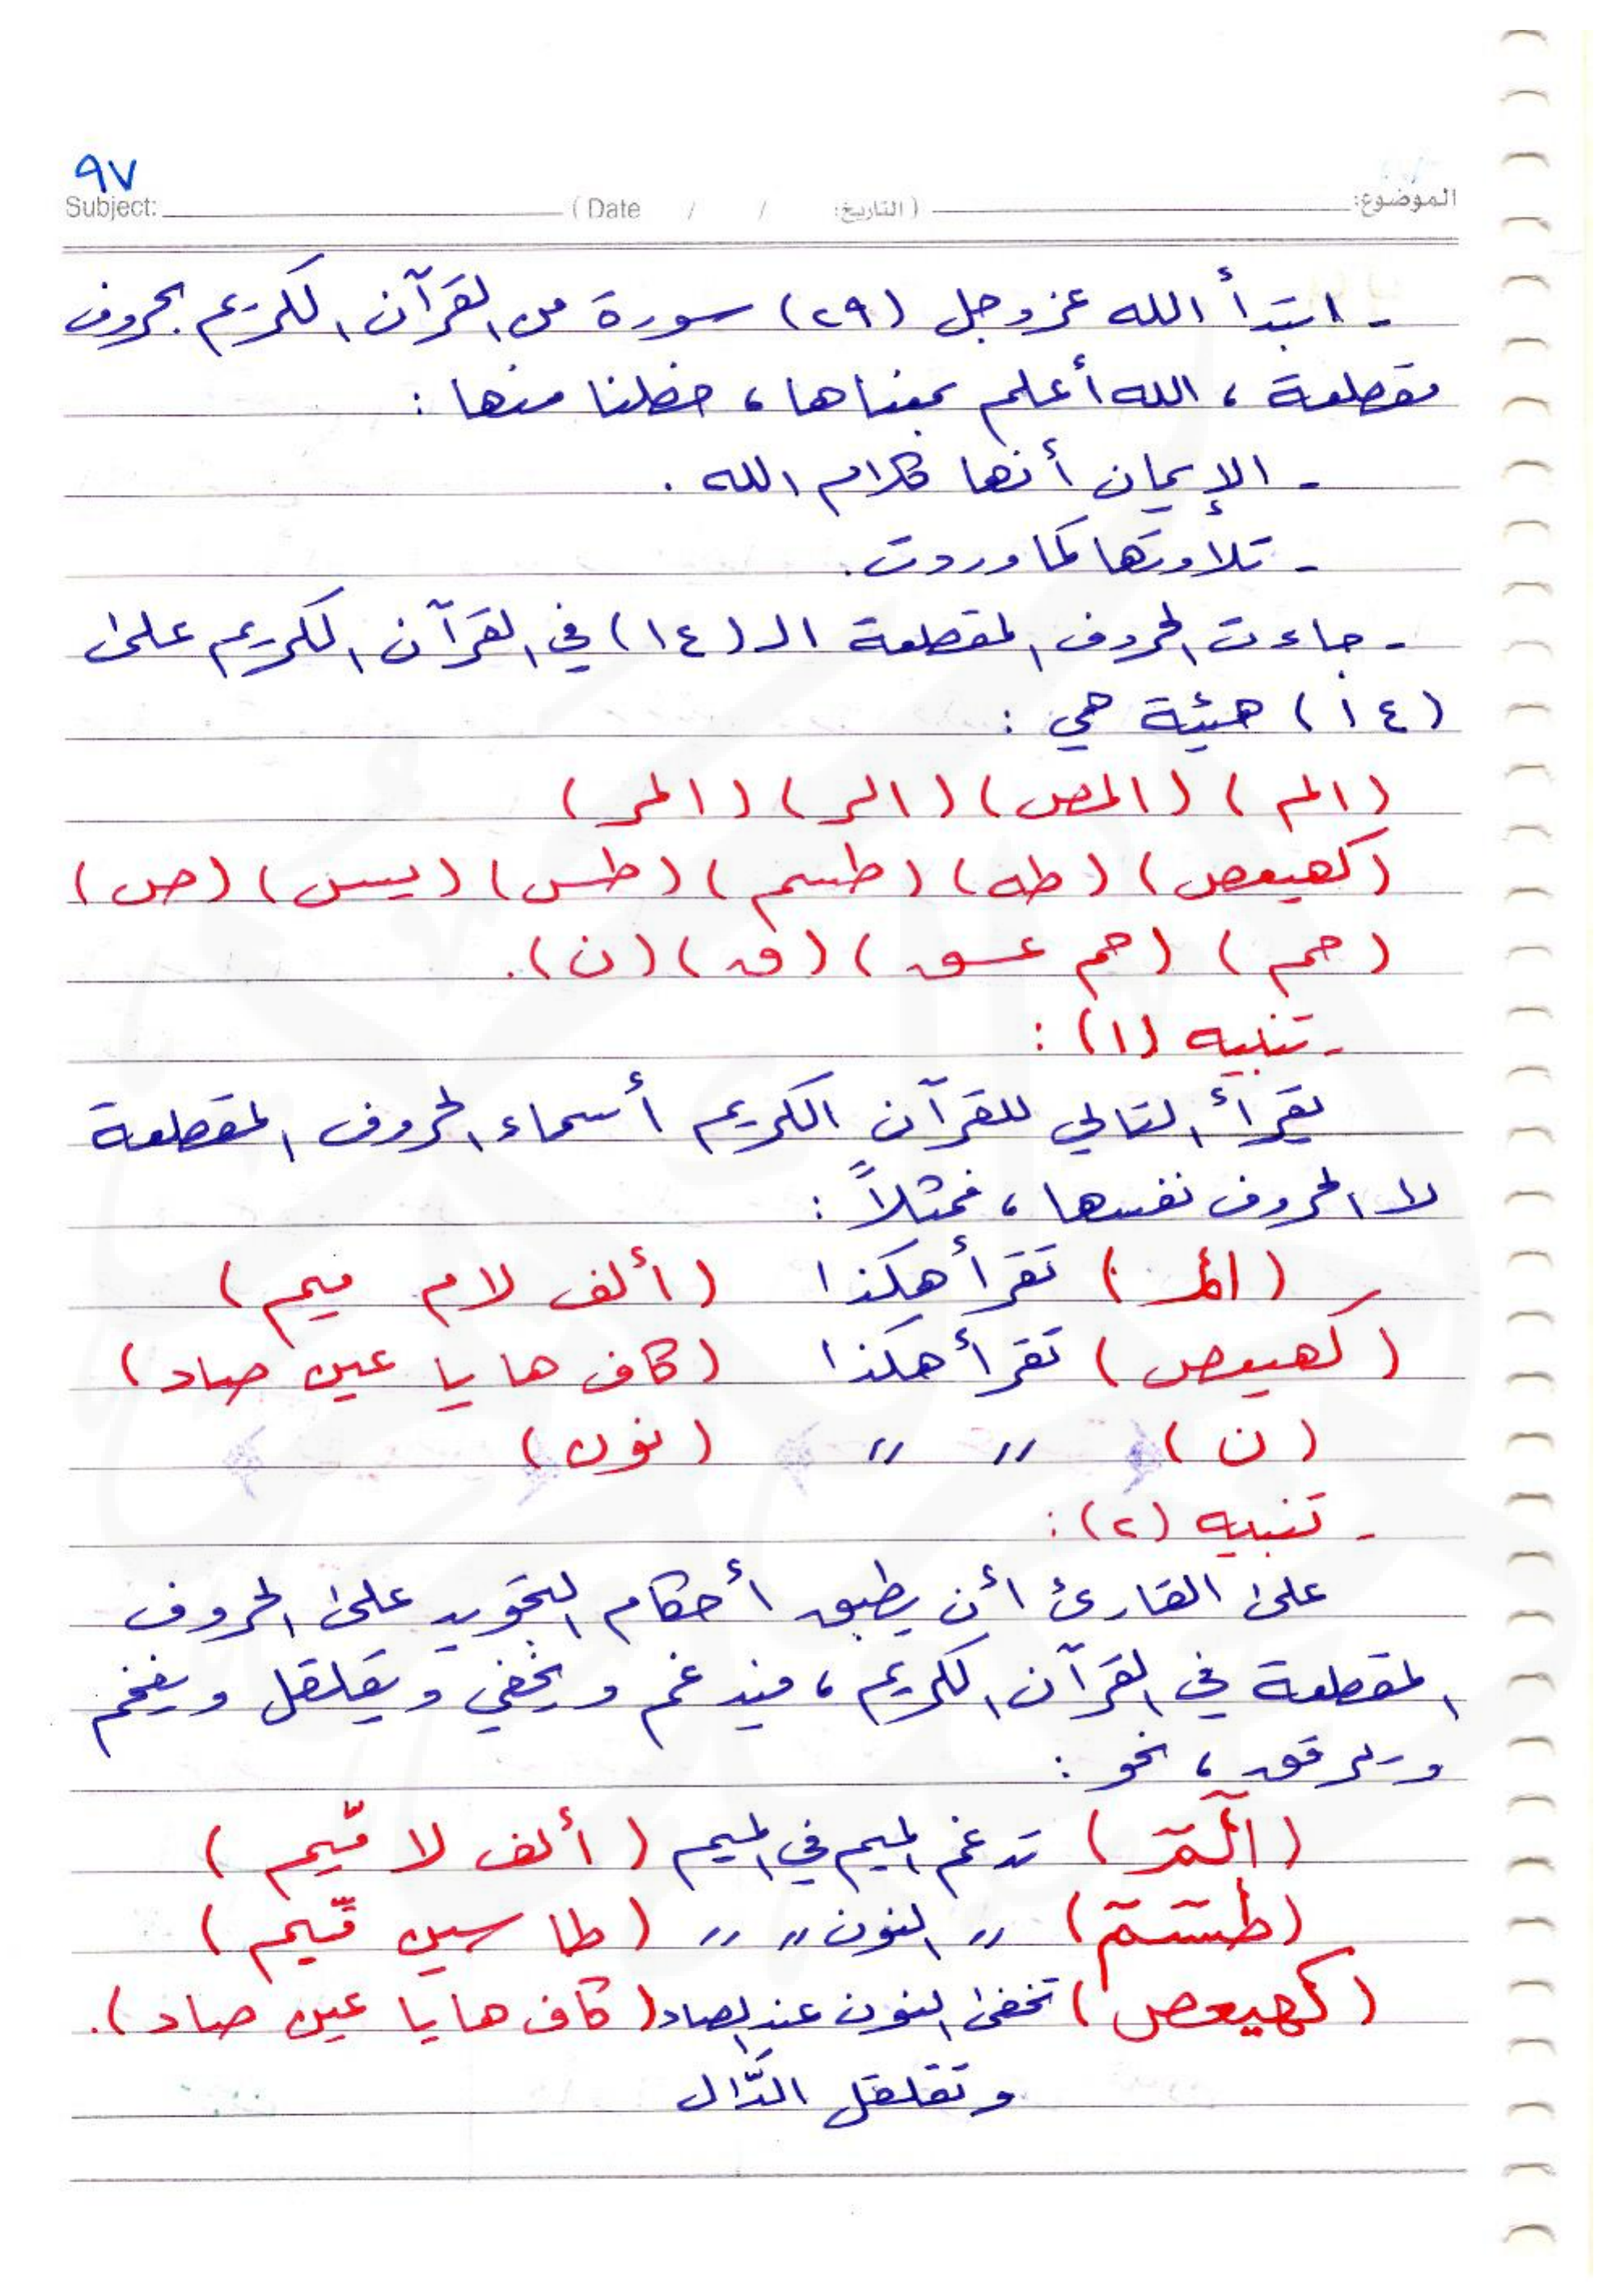 ٩٧
Subject: (Date / / التاريخ:) الموضوع:
- ابتدأ الله عز وجل (٢٩) سورة من القرآن الكريم بحروف
مقطعة ، الله أعلم بمعناها ، حظنا منها :
- الإيمان أنها كلام الله .
- تلاوتها كما وردت .
- جاءت الحروف المقطعة الـ (١٤) في القرآن الكريم على
(١٤) هيئة هي :
(الم) (المص) (الر) (المر)
(كهيعص) (طه) (طسم) (طس) (يس) (ص)
(حم) (حم عسق) (ق) (ن).
- تنبيه (١) :
يقرأ التالي للقرآن الكريم أسماء الحروف المقطعة
لا الحروف نفسها ، فمثلاً :
(الم) تقرأ هكذا (ألف لام ميم)
(كهيعص) تقرأ هكذا (كاف ها يا عين صاد)
(ن) " " (نون)
- تنبيه (٢) :
على القارئ أن يطبق أحكام التجويد على الحروف
المقطعة في القرآن الكريم ، فيدغم ويخفي ويقلقل ويفخم
ويرقق ، نحو :
(الٓمٓر) تدغم الميم في الميم (ألف لا مّيم)
(طسٓمٓ) " النون " " (طا سين مّيم)
(كهيعص) تخفى النون عند الصاد (كاف ها يا عين صاد).
وتقلقل الدّال